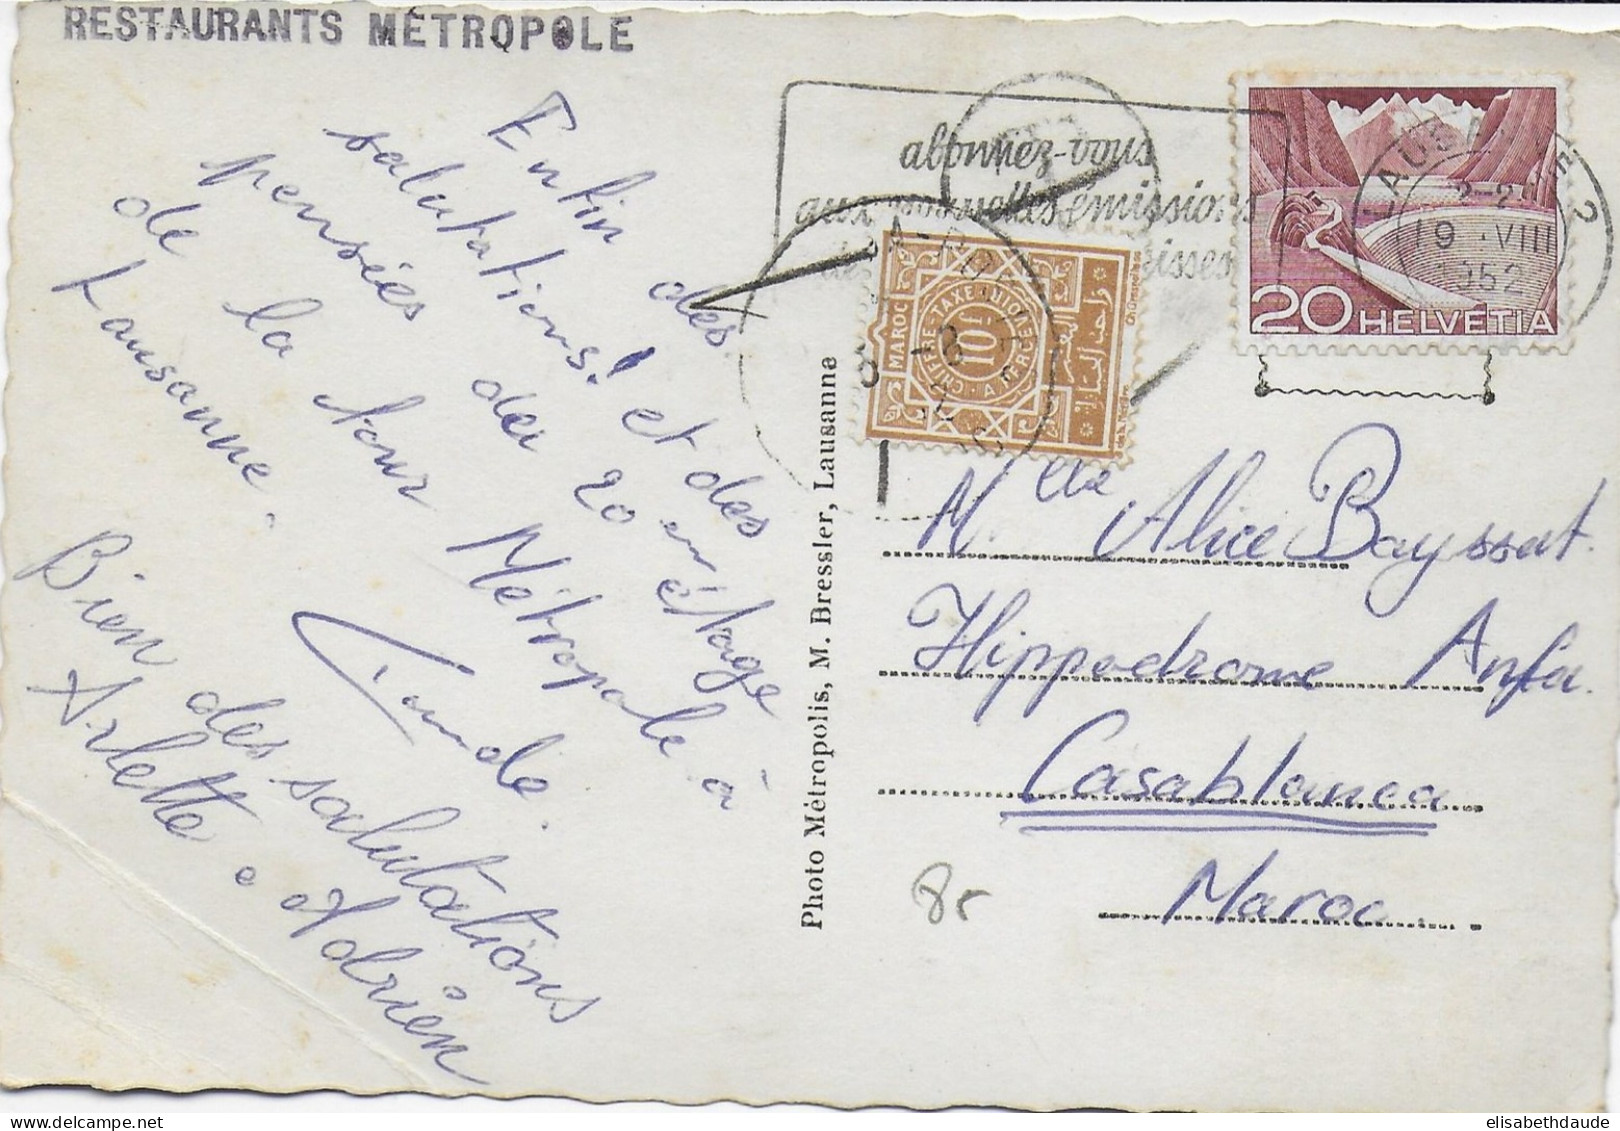 RESTAURANTS MÉTROPOLE
Enfin des
salutations! et des
pensées du 20 em étage
de la tour Métropole à
Lausanne.
Claude.
Bien des salutations
Arlette e Adrien
Photo Métropolis, M. Bressler, Lausanne
abonnez-vous
aux nouvelles émissions
LAUSANNE 2
19.VIII
1952
20 HELVETIA
MAROC
CHIFFRE-TAXE
A PERCEVOIR
10F
Melle Alice Bayssat.
Hippodrome Anfa.
Casablanca
Maroc.
elisabethdaude